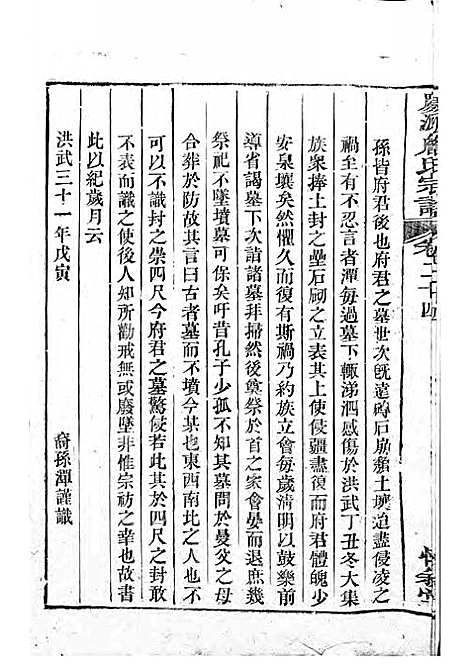 慶源詹氏宗譜 卷之二十四
孫皆府君後也府君之墓世次旣遠磚石崩剝土壤迫盡侵凌之
禍至有不忍言者潭每過墓下輒涕泗感傷於洪武丁丑冬大集
族衆捧土封之壘石刷之立表其上使侵疆盡復而府君體魄少
安泉壤矣然懼久而復有斯禍乃約族立會每歲淸明以鼓樂前
導省謁墓下次詣諸墓拜掃然後奠祭於首之家會晏而退庶幾
祭祀不墜墳墓可保矣吁昔孔子少孤不知其墓問於曼父之母
合葬於防故其言曰古者墓而不墳今某也東西南北之人也不
可以不識封之崇四尺今府君之墓驚侵若此其於四尺之封敢
不表而識之使後人知所勸戒無或廢墜非惟宗祊之幸也故書
此以紀歲月云
洪武三十一年戊寅 裔孫潭謹識